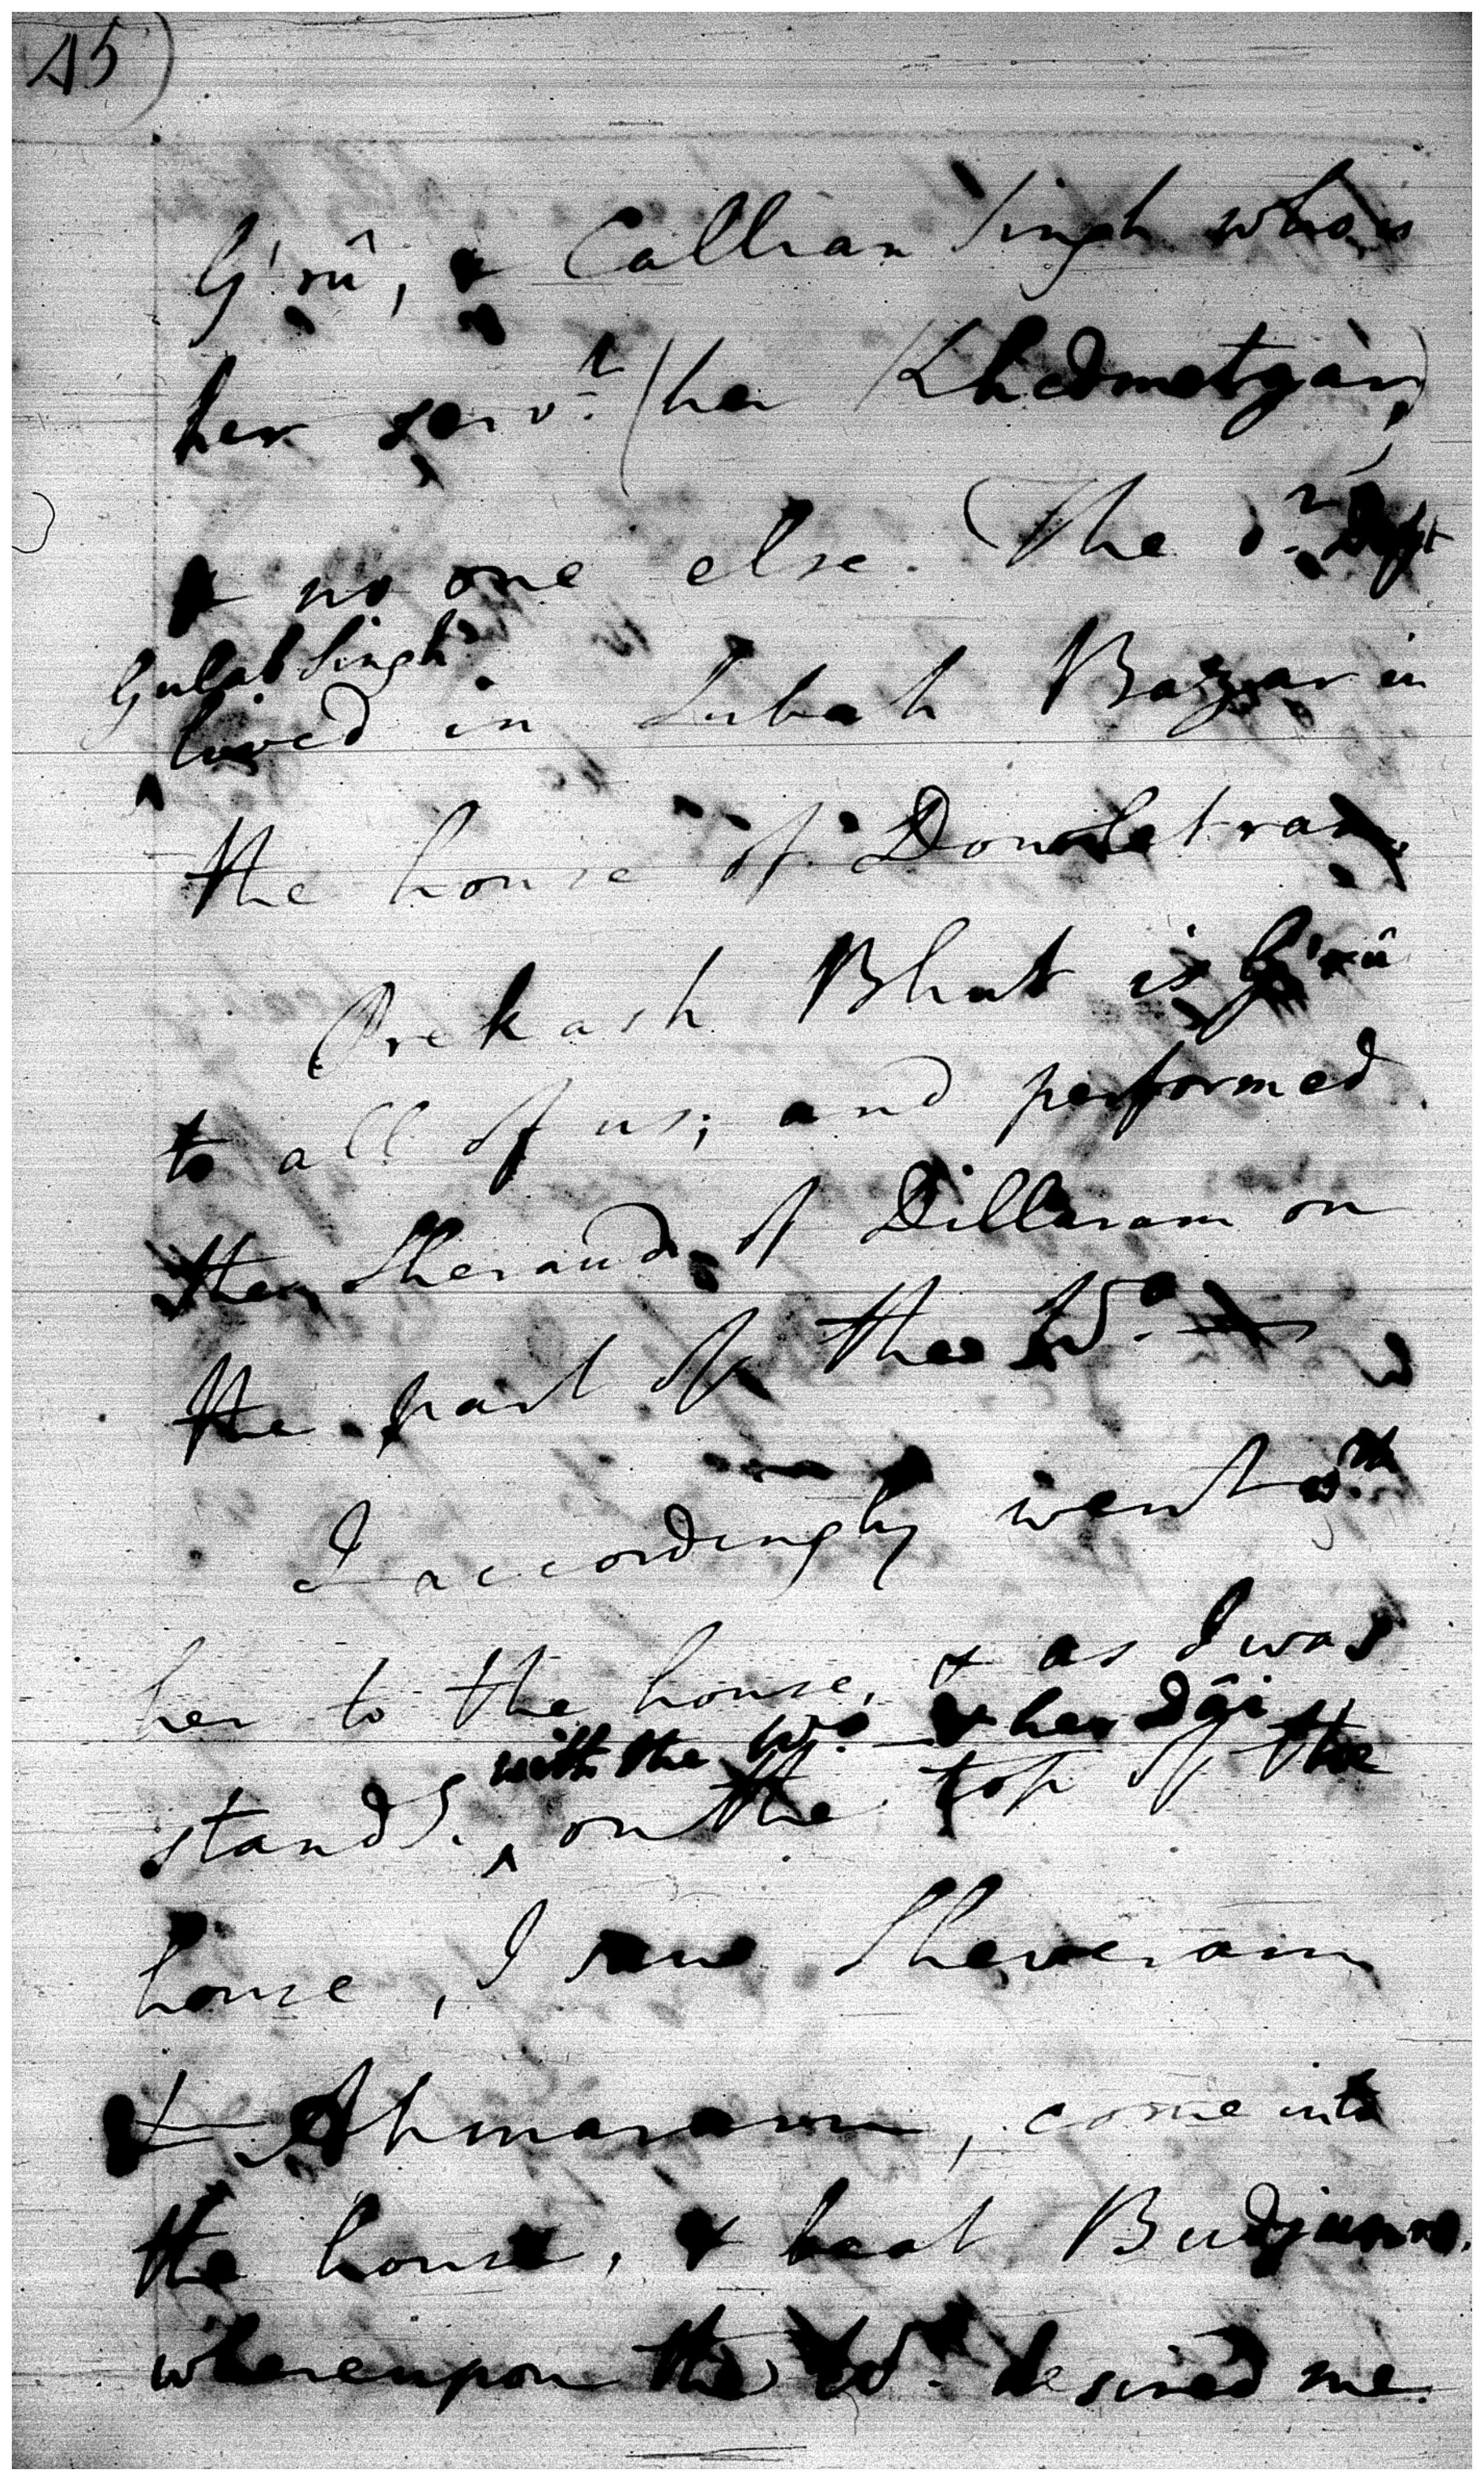 45)
G'rû, & Callian Singh who is
her serv.t (her Khedmetgàr)
& no one else. (The d.r Deft
Gulab Singh
lived in Lubah Bazar in
the house of Dowletram.
Prekash Bhut is G'rû
to all of us; and performed
the Sheraud of Dillaram on
the part of the W.o
I accordingly went w.th
her to the house, & as I was
with the W.o & her Dâi
stand.g ^ on the top of the
house, I saw Sheveram
& Ahmaram, come into
the house, & beat Budjunno.
whereupon the W.o desired me.